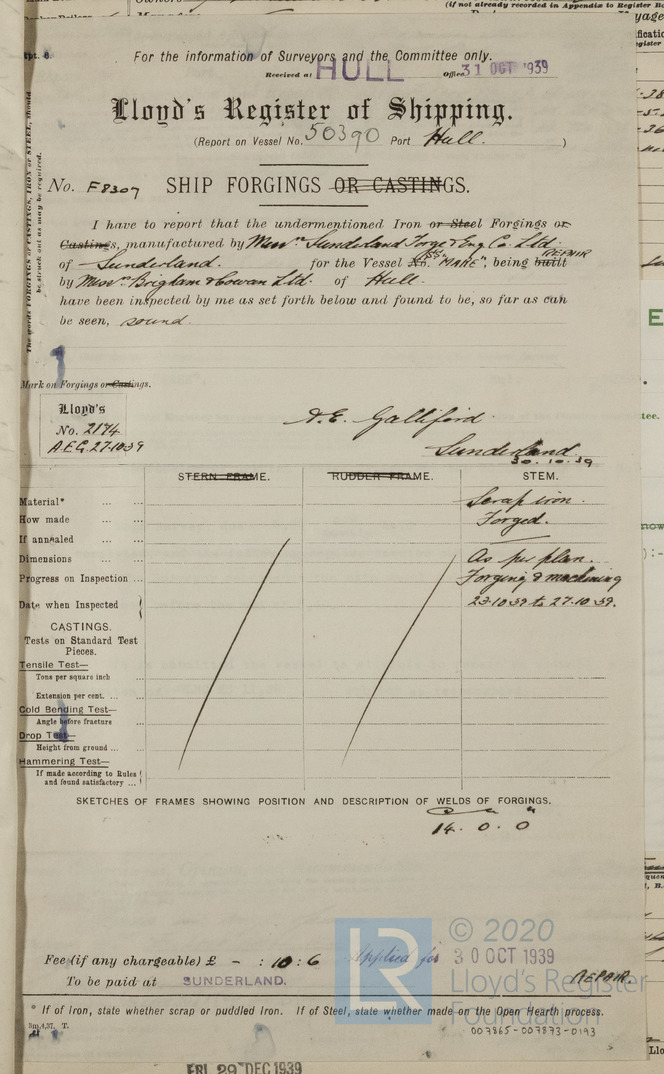 (if not already recorded in Appendix to Register Bo
For the information of Surveyors and the Committee only.
Received at HULL Office 31 OCT 1939
Lloyd's Register of Shipping.
(Report on Vessel No. 50390 Port Hull. )
No. F8307 SHIP FORGINGS OR CASTINGS.
I have to report that the undermentioned Iron or Steel Forgings or
Castings, manufactured by Messrs Sunderland Forge & Eng. Co. Ltd.
of Sunderland. for the Vessel No. "MARE", being built REPAIR
by Messrs Brigham & Cowan Ltd. of Hull.
have been inspected by me as set forth below and found to be, so far as can
be seen, sound.
The words FORGINGS or CASTINGS, IRON or STEEL, should
be struck out as may be required.
Mark on Forgings or Castings.
Lloyd's
No. 2174
A.E.G. 27.10.39
A.E. Galliford
Sunderland
30.10.39
STERN FRAME. RUDDER FRAME. STEM.
Material* ... ... Scrap iron.
How made ... ... Forged.
If annealed ... ...
Dimensions ... ... As per plan.
Progress on Inspection ... Forging & machining
Date when Inspected 23.10.39 to 27.10.39.
CASTINGS.
Tests on Standard Test
Pieces.
Tensile Test—
Tons per square inch
Extension per cent. ...
Cold Bending Test—
Angle before fracture
Drop Test—
Height from ground ...
Hammering Test—
If made according to Rules
and found satisfactory ...
SKETCHES OF FRAMES SHOWING POSITION AND DESCRIPTION OF WELDS OF FORGINGS.
14. 0. 0
Fee (if any chargeable) £ - : 10 : 6 Applied for 30 OCT 1939
To be paid at SUNDERLAND. REPAIR.
* If of Iron, state whether scrap or puddled Iron. If of Steel, state whether made on the Open Hearth process.
LR © 2020
Lloyd's Register
Foundation
007865-007873-0193
FRI. 29 DEC 1939